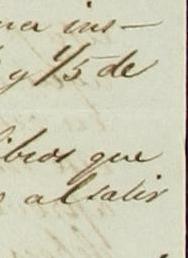 na ins-
y 1/5 de
libros que
al salir